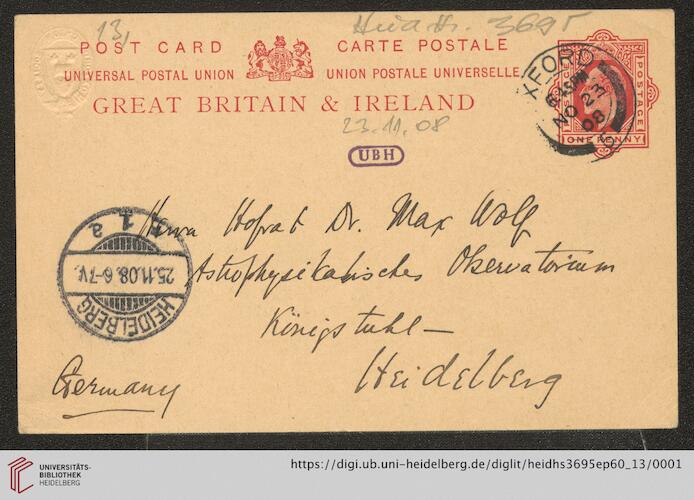 13,
Heid. Hs. 3695
POST CARD
CARTE POSTALE
UNIVERSAL POSTAL UNION
UNION POSTALE UNIVERSELLE
GREAT BRITAIN & IRELAND
POSTAGE
ONE PENNY
OXFORD
6.45PM
NO 23
08
23.11.08
UBH
Herrn Hofrat Dr. Max Wolf
Astrophysikalisches Observatorium
Königstuhl —
Heidelberg
Germany
HEIDELBERG
25.11.08.6-7V.
1
a
UNIVERSITÄTS-
BIBLIOTHEK
HEIDELBERG
https://digi.ub.uni-heidelberg.de/diglit/heidhs3695ep60_13/0001